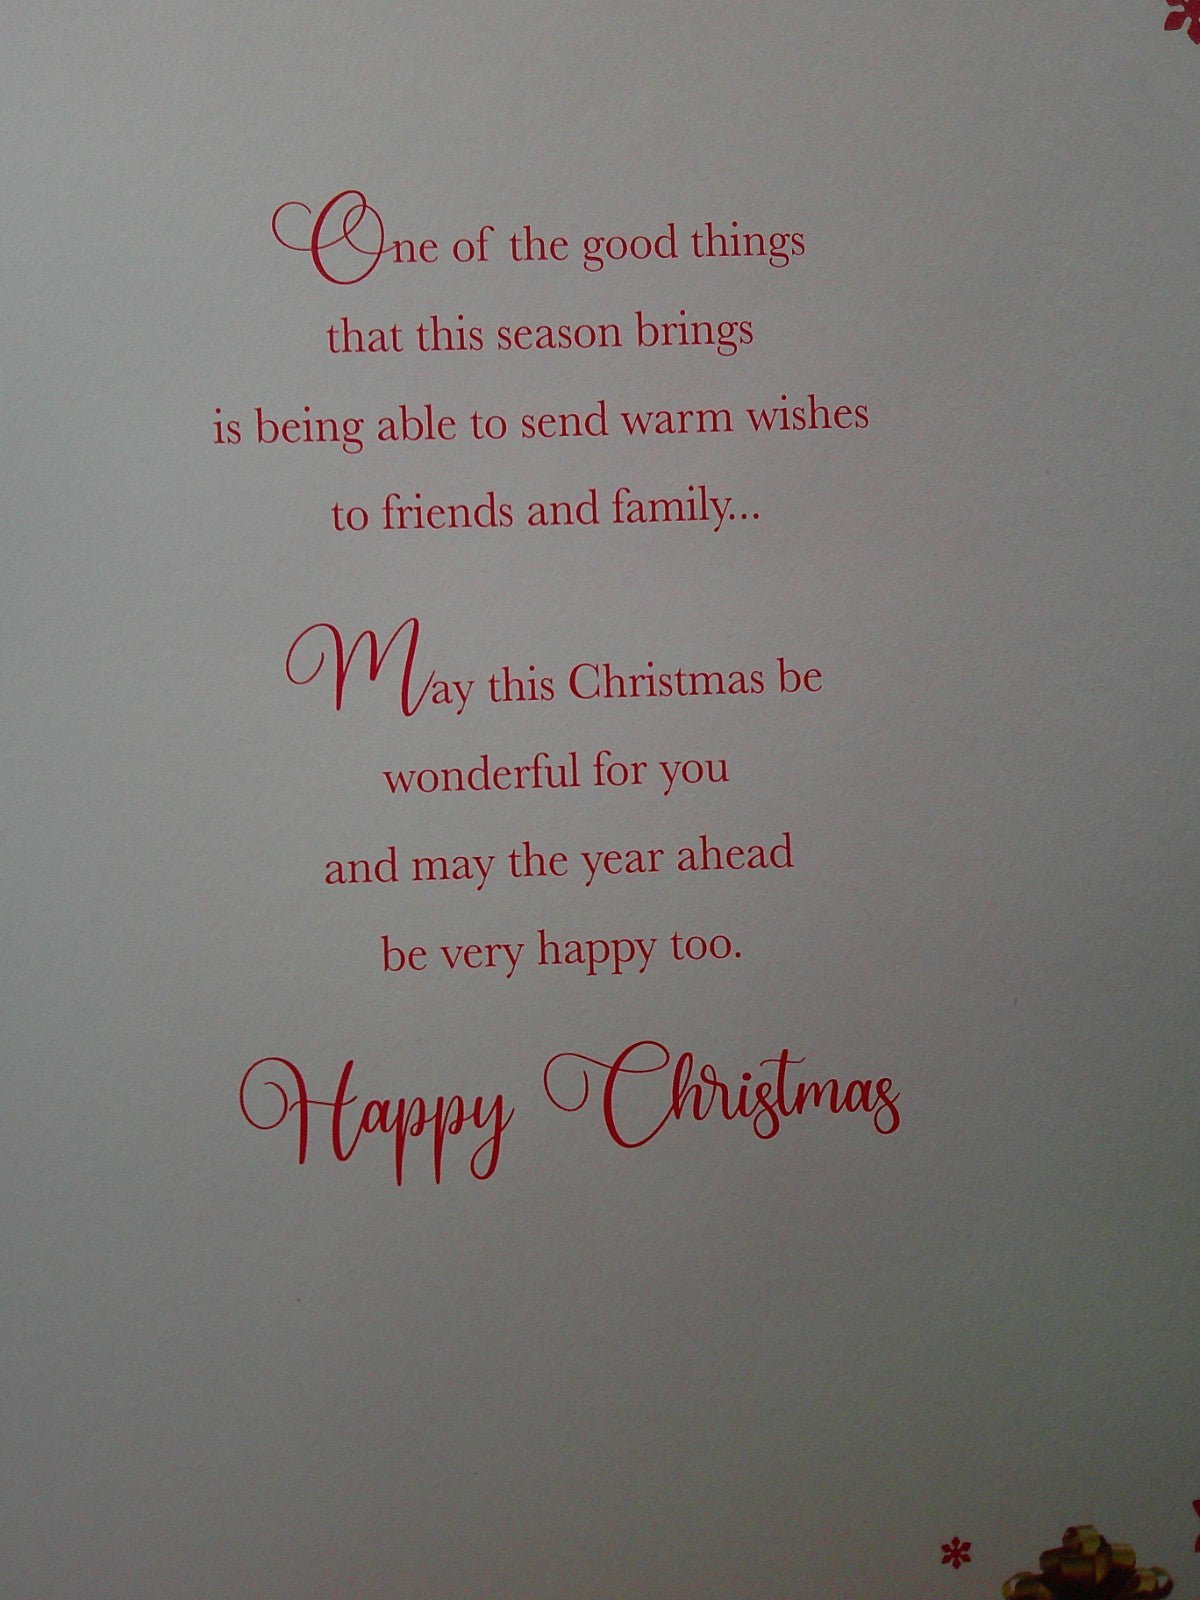 One of the good things
that this season brings
is being able to send warm wishes
to friends and family...
May this Christmas be
wonderful for you
and may the year ahead
be very happy too.
Happy Christmas